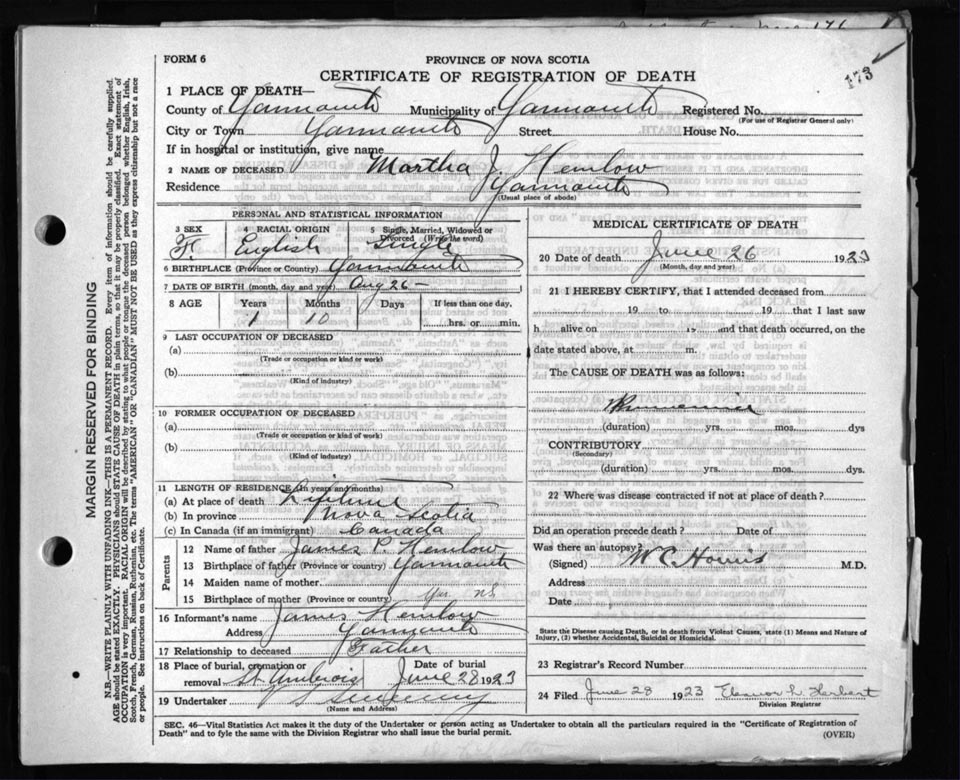 173
FORM 6
PROVINCE OF NOVA SCOTIA
CERTIFICATE OF REGISTRATION OF DEATH
1 PLACE OF DEATH—
County of Yarmouth Municipality of Yarmouth Registered No.
(For use of Registrar General only)
City or Town Yarmouth Street House No.
If in hospital or institution, give name
2 NAME OF DECEASED Martha J. Hemlow
Residence Yarmouth
(Usual place of abode)
PERSONAL AND STATISTICAL INFORMATION
3 SEX 4 RACIAL ORIGIN 5 Single, Married, Widowed or Divorced (Write the word)
F. English Single
6 BIRTHPLACE (Province or Country) Yarmouth
7 DATE OF BIRTH (month, day and year) Aug 26 —
8 AGE Years Months Days If less than one day,
1 10 hrs. or min.
9 LAST OCCUPATION OF DECEASED
(a)
(Trade or occupation or kind or work)
(b)
(Kind of industry)
10 FORMER OCCUPATION OF DECEASED
(a)
(Trade or occupation or kind of work)
(b)
(Kind of industry)
11 LENGTH OF RESIDENCE (in years and months)
(a) At place of death Lifetime
(b) In province Nova Scotia
(c) In Canada (if an immigrant) Canada
Parents
12 Name of father James P. Hemlow
13 Birthplace of father (Province or country) Yarmouth
14 Maiden name of mother
15 Birthplace of mother (Province or country) Yar NS
16 Informant's name James Hemlow
Address Yarmouth
17 Relationship to deceased Father
18 Place of burial, cremation or removal St Ambrois Date of burial June 28 1923
19 Undertaker V S Sweeny
(Name and Address)
MEDICAL CERTIFICATE OF DEATH
20 Date of death June 26 1923
(Month, day and year)
21 I HEREBY CERTIFY, that I attended deceased from
19 to 19 that I last saw
h alive on 19 and that death occurred, on the
date stated above, at m.
The CAUSE OF DEATH was as follows:
(duration) yrs. mos. dys
CONTRIBUTORY
(Secondary)
(duration) yrs. mos. dys.
22 Where was disease contracted if not at place of death?
Did an operation precede death? Date of
Was there an autopsy?
(Signed) M.D.
Address
Date
State the Disease causing Death, or in death from Violent Causes, state (1) Means and Nature of
Injury, (2) whether Accidental, Suicidal or Homicidal.
23 Registrar's Record Number
24 Filed June 28 1923 Eleanor L. Herbert
Division Registrar
SEC. 46—Vital Statistics Act makes it the duty of the Undertaker or person acting as Undertaker to obtain all the particulars required in the "Certificate of Registration of
Death" and to fyle the same with the Division Registrar who shall issue the burial permit.
(OVER)
MARGIN RESERVED FOR BINDING
N.B.—WRITE PLAINLY WITH UNFADING INK—THIS IS A PERMANENT RECORD. Every item of information should be carefully supplied.
AGE should be stated EXACTLY. PHYSICIANS should STATE CAUSE OF DEATH in plain terms, so that it may be properly classified. Exact statement of
OCCUPATION is very important. RACIAL ORIGIN will be described by stating to what people or tongue the deceased person belonged, whether English, Irish,
Scotch, French, German, Russian, Ruthenian, etc. The terms "AMERICAN" OR "CANADIAN" MUST NOT BE USED as they express citizenship but not a race
or people. See instructions on back of Certificate.